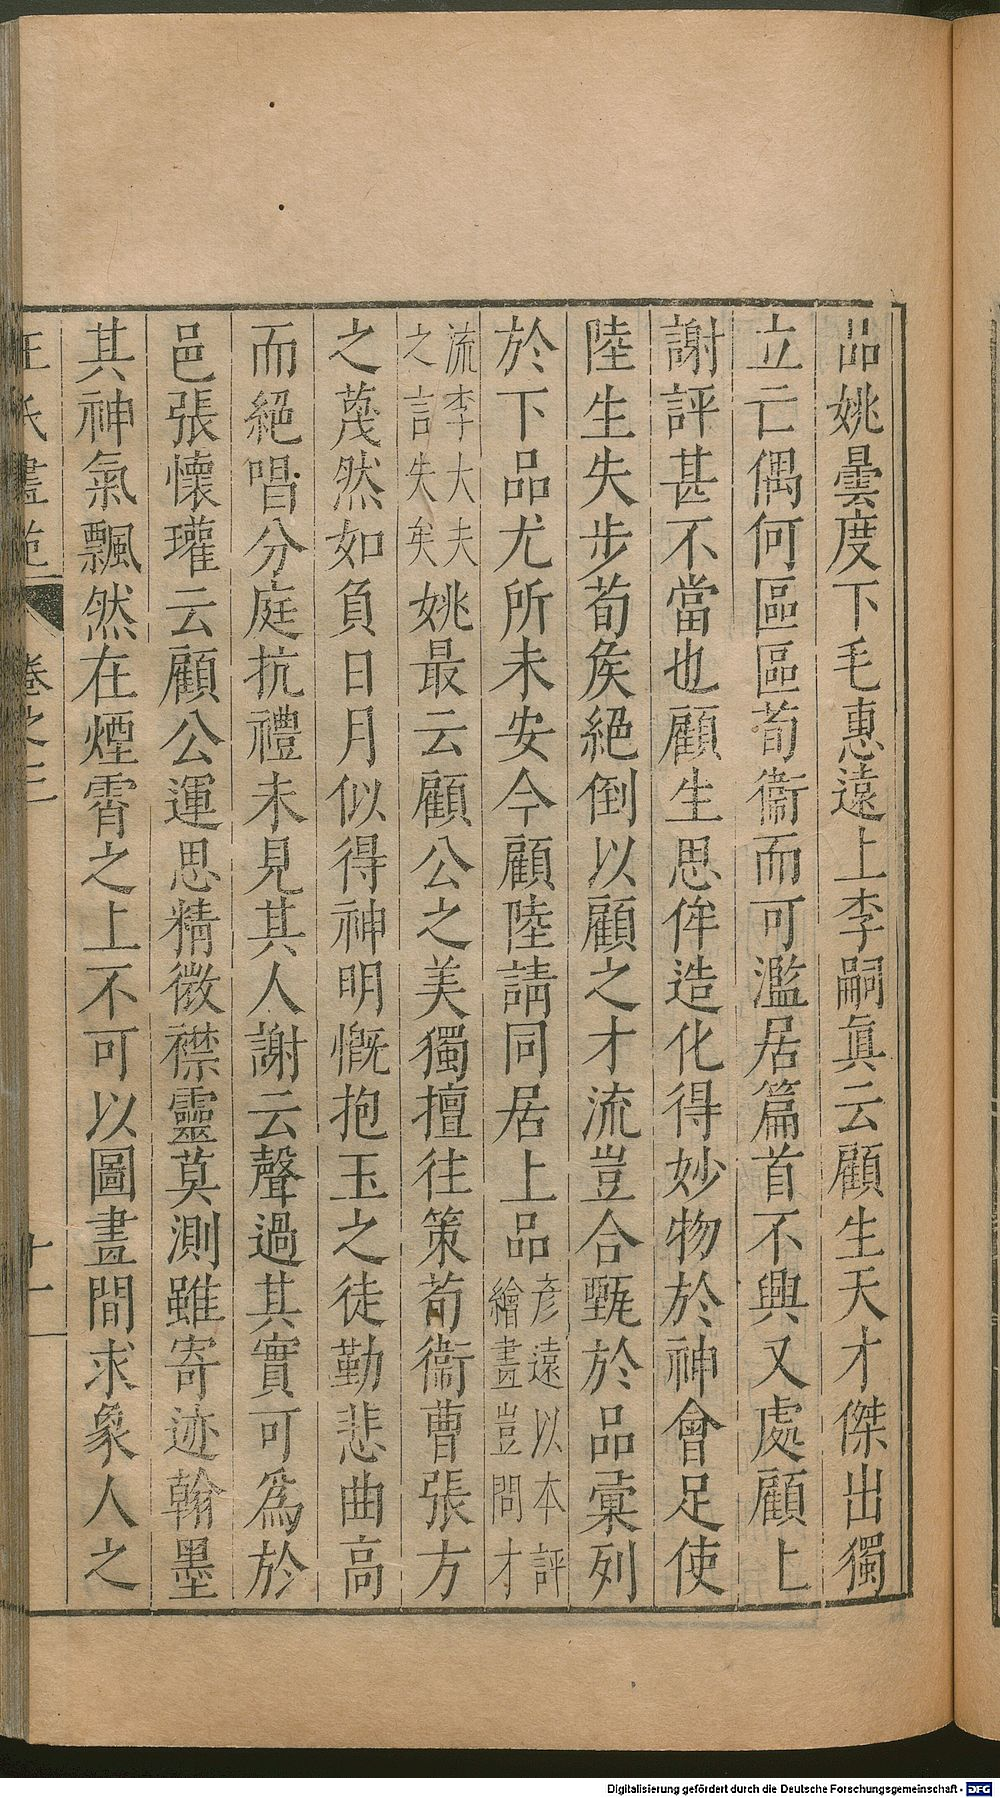 品姚曇度下毛惠遠上李嗣眞云顧生天才傑出獨
立亡偶何區區荀衞而可濫居篇首不興又處顧上
謝評甚不當也顧生思侔造化得妙物於神會足使
陸生失步荀矦絕倒以顧之才流豈合甄於品彚列
於下品尤所未安今顧陸請同居上品彥遠以本評繪畫豈問才
流李大夫之言失矣姚最云顧公之美獨擅往策荀衞曹張方
之蔑然如負日月似得神明慨抱玉之徒勤悲曲高
而絕唱分庭抗禮未見其人謝云聲過其實可爲於
邑張懷瓘云顧公運思精微襟靈莫測雖寄迹翰墨
其神氣飄然在煙霄之上不可以圖畫間求象人之
王氏畫苑 卷之三 十一
Digitalisierung gefördert durch die Deutsche Forschungsgemeinschaft - DFG